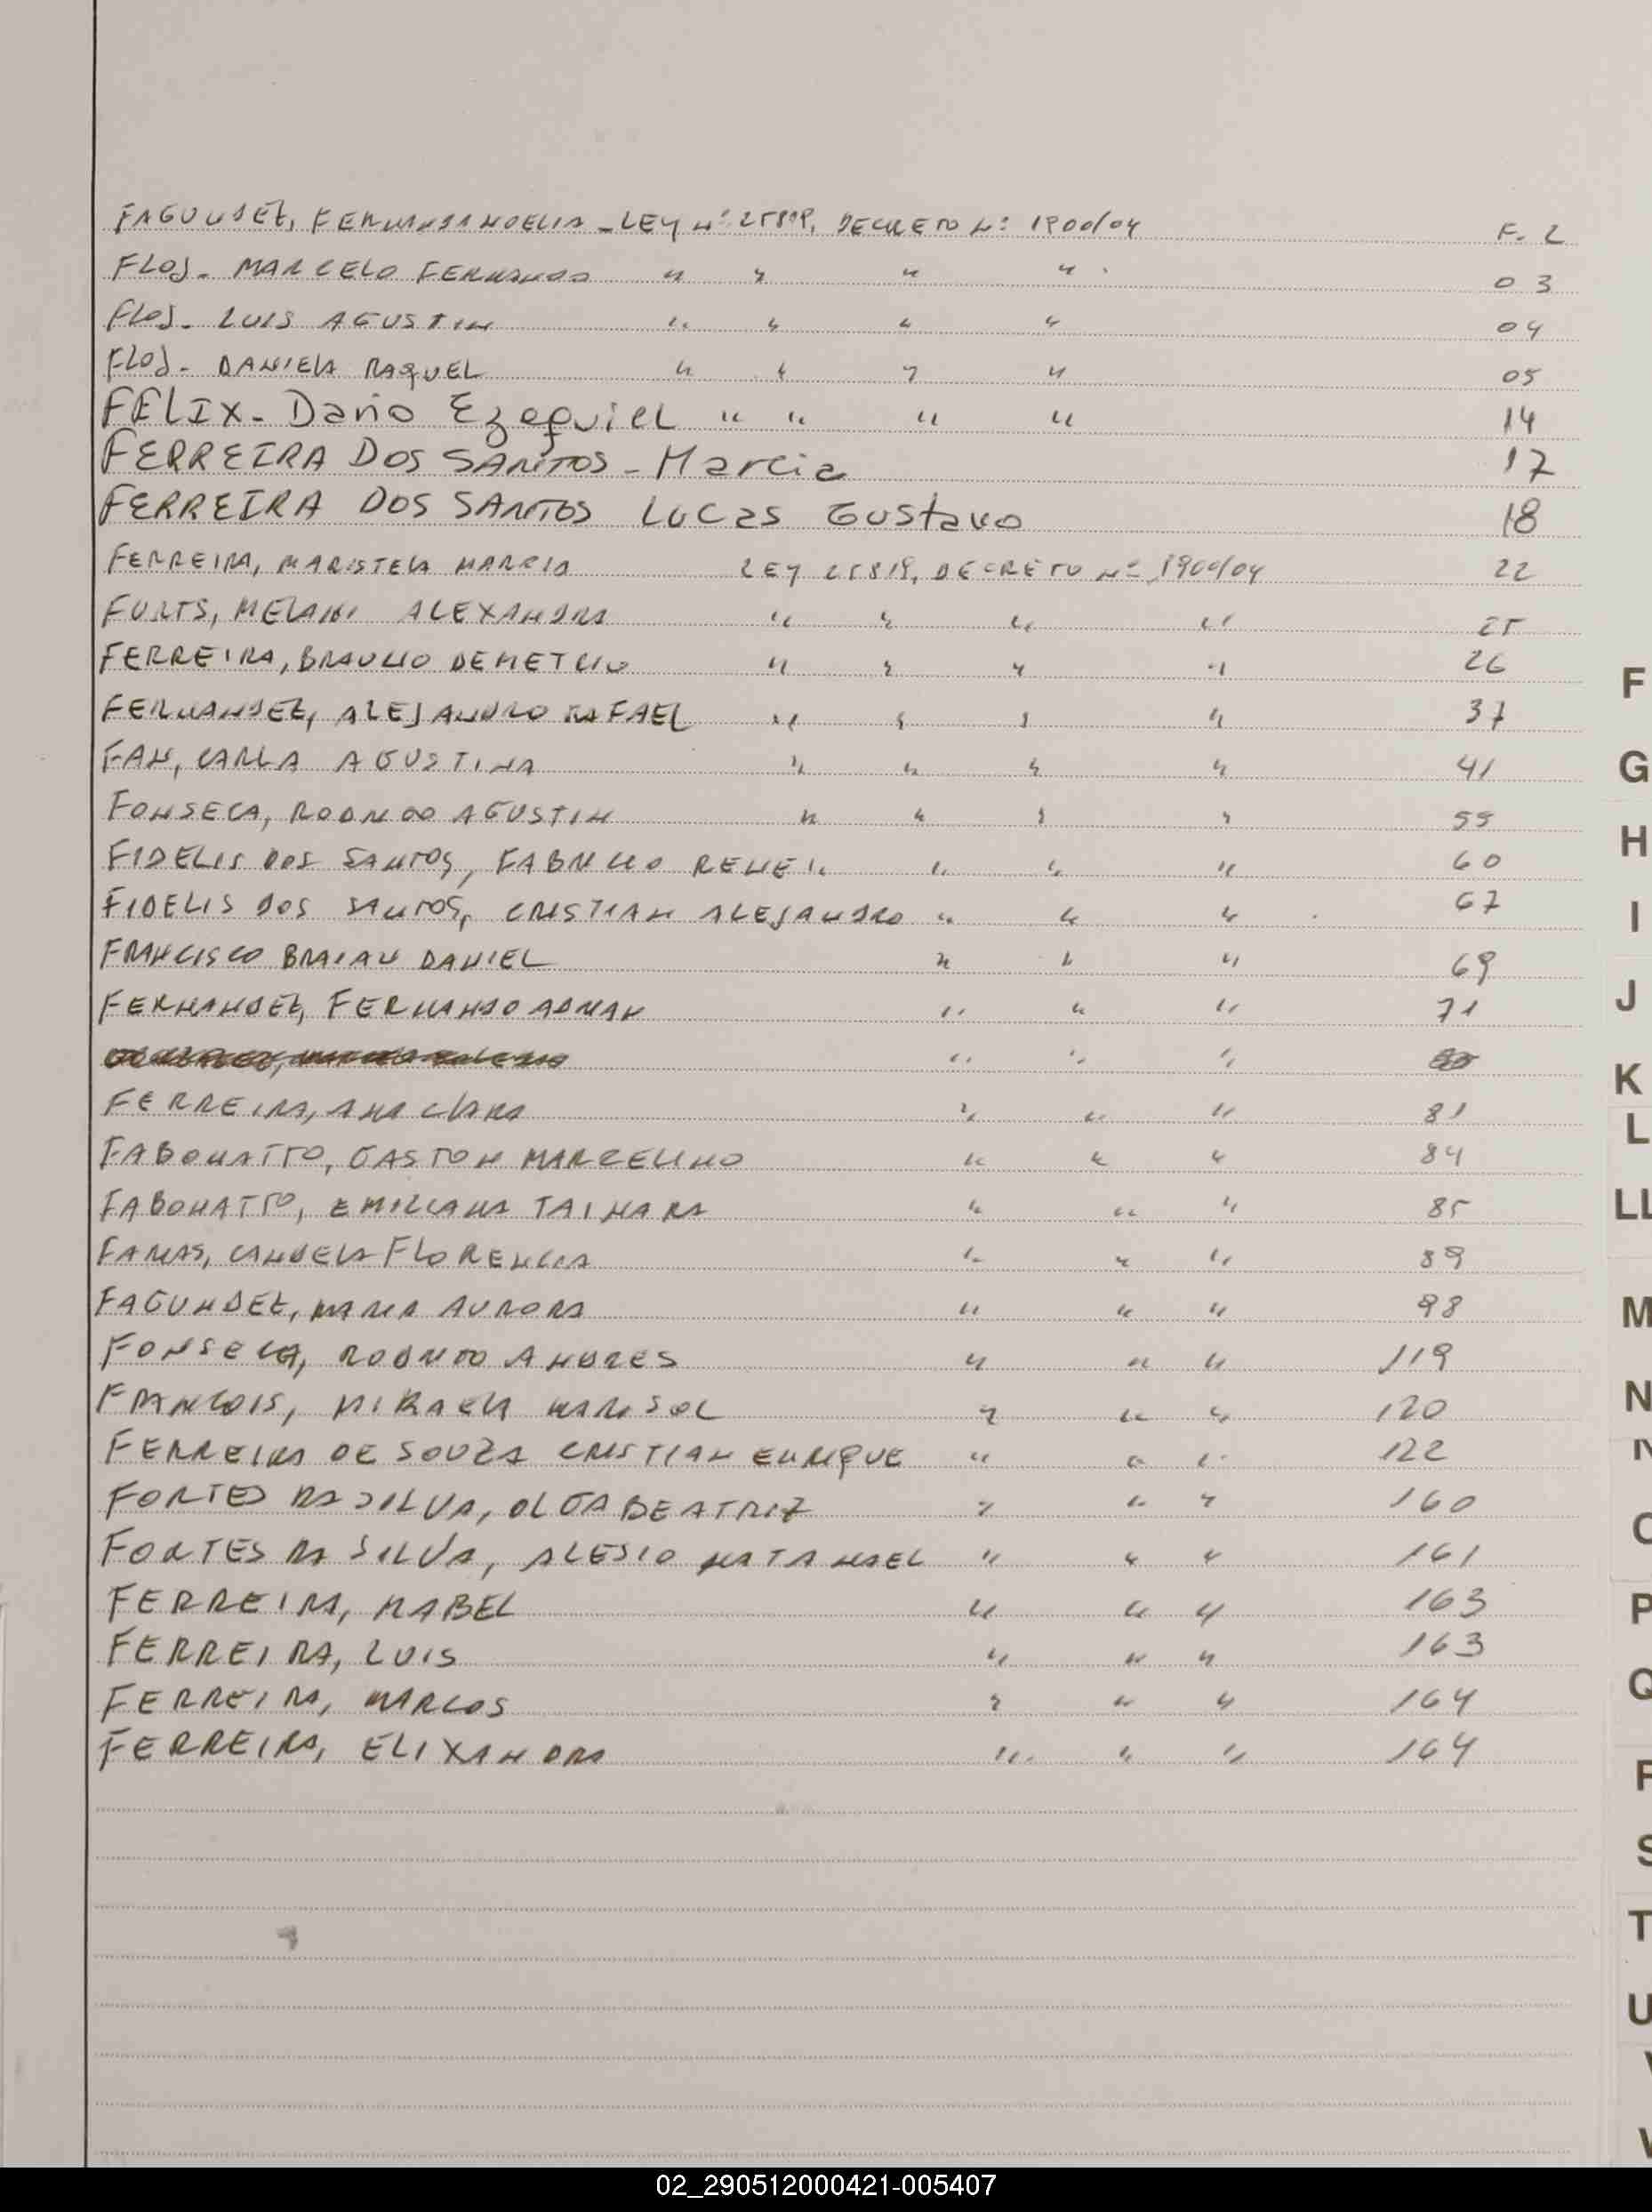 FAGUNDEZ, FERNANDA NOELIA - LEY Nº 25819, DECRETO Nº 1900/04 F. 2
FLOS - MARCELO FERNANDO " " " " 03
FLOS - LUIS AGUSTIN " " " " 04
FLOS - DANIELA RAQUEL " " " " 05
FELIX - Dario Ezequiel " " " " 14
FERREIRA DOS SANTOS - Marcia 17
FERREIRA DOS SANTOS LUCAS GUSTAVO 18
FERREIRA, MARISTELA MARCIA LEY 25819, DECRETO Nº 1900/04 22
FURTS, MELANI ALEXANDRA " " " " 25
FERREIRA, BRAULIO DEMETRIO " " " " 26
FERNANDEZ, ALEJANDRO RAFAEL " " " " 37
FAN, CARLA AGUSTINA " " " " 41
FONSECA, RODRIGO AGUSTIN " " " " 55
FIDELIS DOS SANTOS, FABRICIO RENE " " " 60
FIDELIS DOS SANTOS, CRISTIAN ALEJANDRO " " " 67
FRANCISCO BRAIAN DANIEL " " " 69
FERNANDEZ, FERNANDO ADRIAN " " " 71
" " "
FERREIRA, ANA CLARA " " " 81
FABONATTO, GASTON MARCELINO " " " 84
FABONATTO, EMILIANA TAINARA " " " 85
FARIAS, CANDELA FLORENCIA " " " 89
FAGUNDEZ, MARIA AURORA " " " 98
FONSECA, RODRIGO ANDRES " " " 119
FRANCOIS, MIKAELA MARISOL " " " 120
FERREIRA DE SOUZA CRISTIAN ENRIQUE " " " 122
FORTES DA SILVA, OLGA BEATRIZ " " " 160
FORTES DA SILVA, ALESIO NATANAEL " " " 161
FERREIRA, MABEL " " " 163
FERREIRA, LUIS " " " 163
FERREIRA, MARCOS " " " 164
FERREIRA, ELIXANDRA " " " 164
F
G
H
I
J
K
L
LL
M
N
O
P
Q
R
S
T
U
02_290512000421-005407